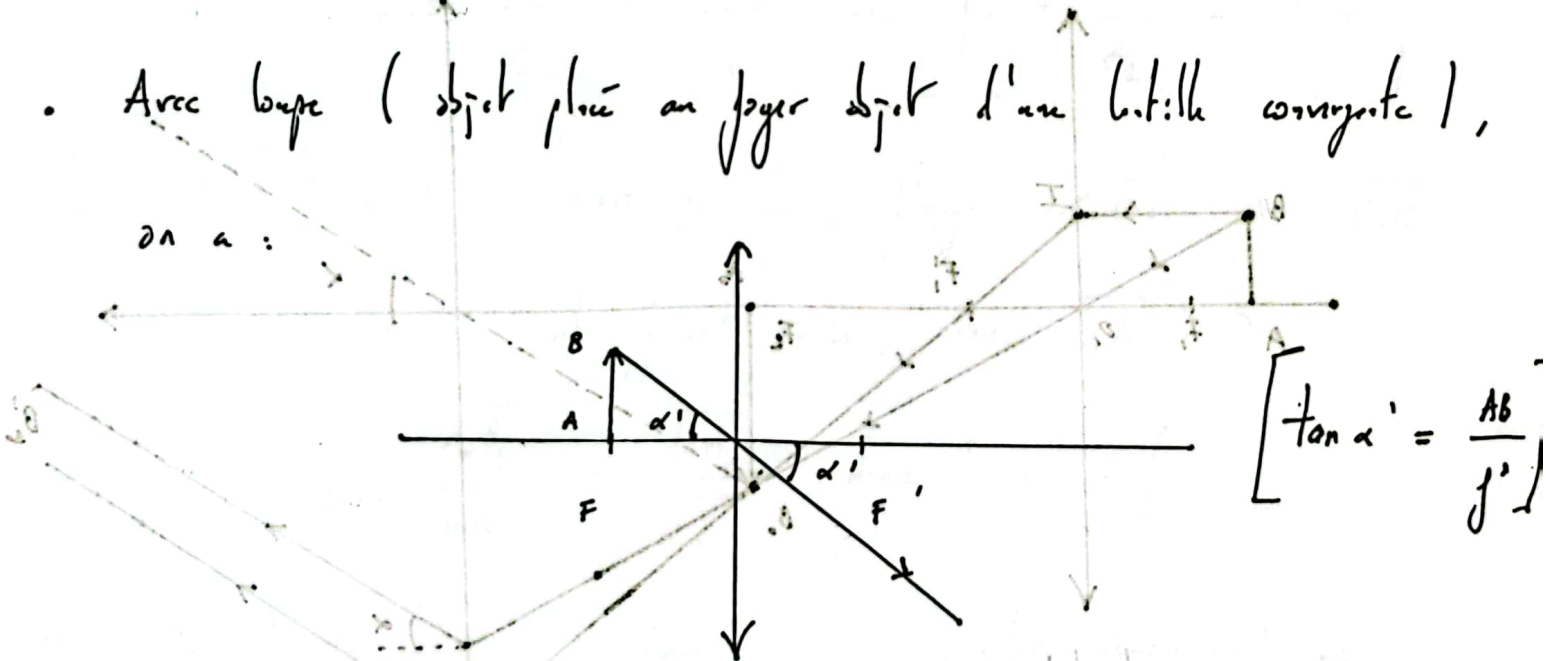 . Avec loupe ( objet placé au foyer objet d'une lentille convergente ),
on a :
B
A α'
α'
F F'
[ tan α' = AB / f' ]
I B
F'₁ O₁ F₁ A
F₂
B'
α